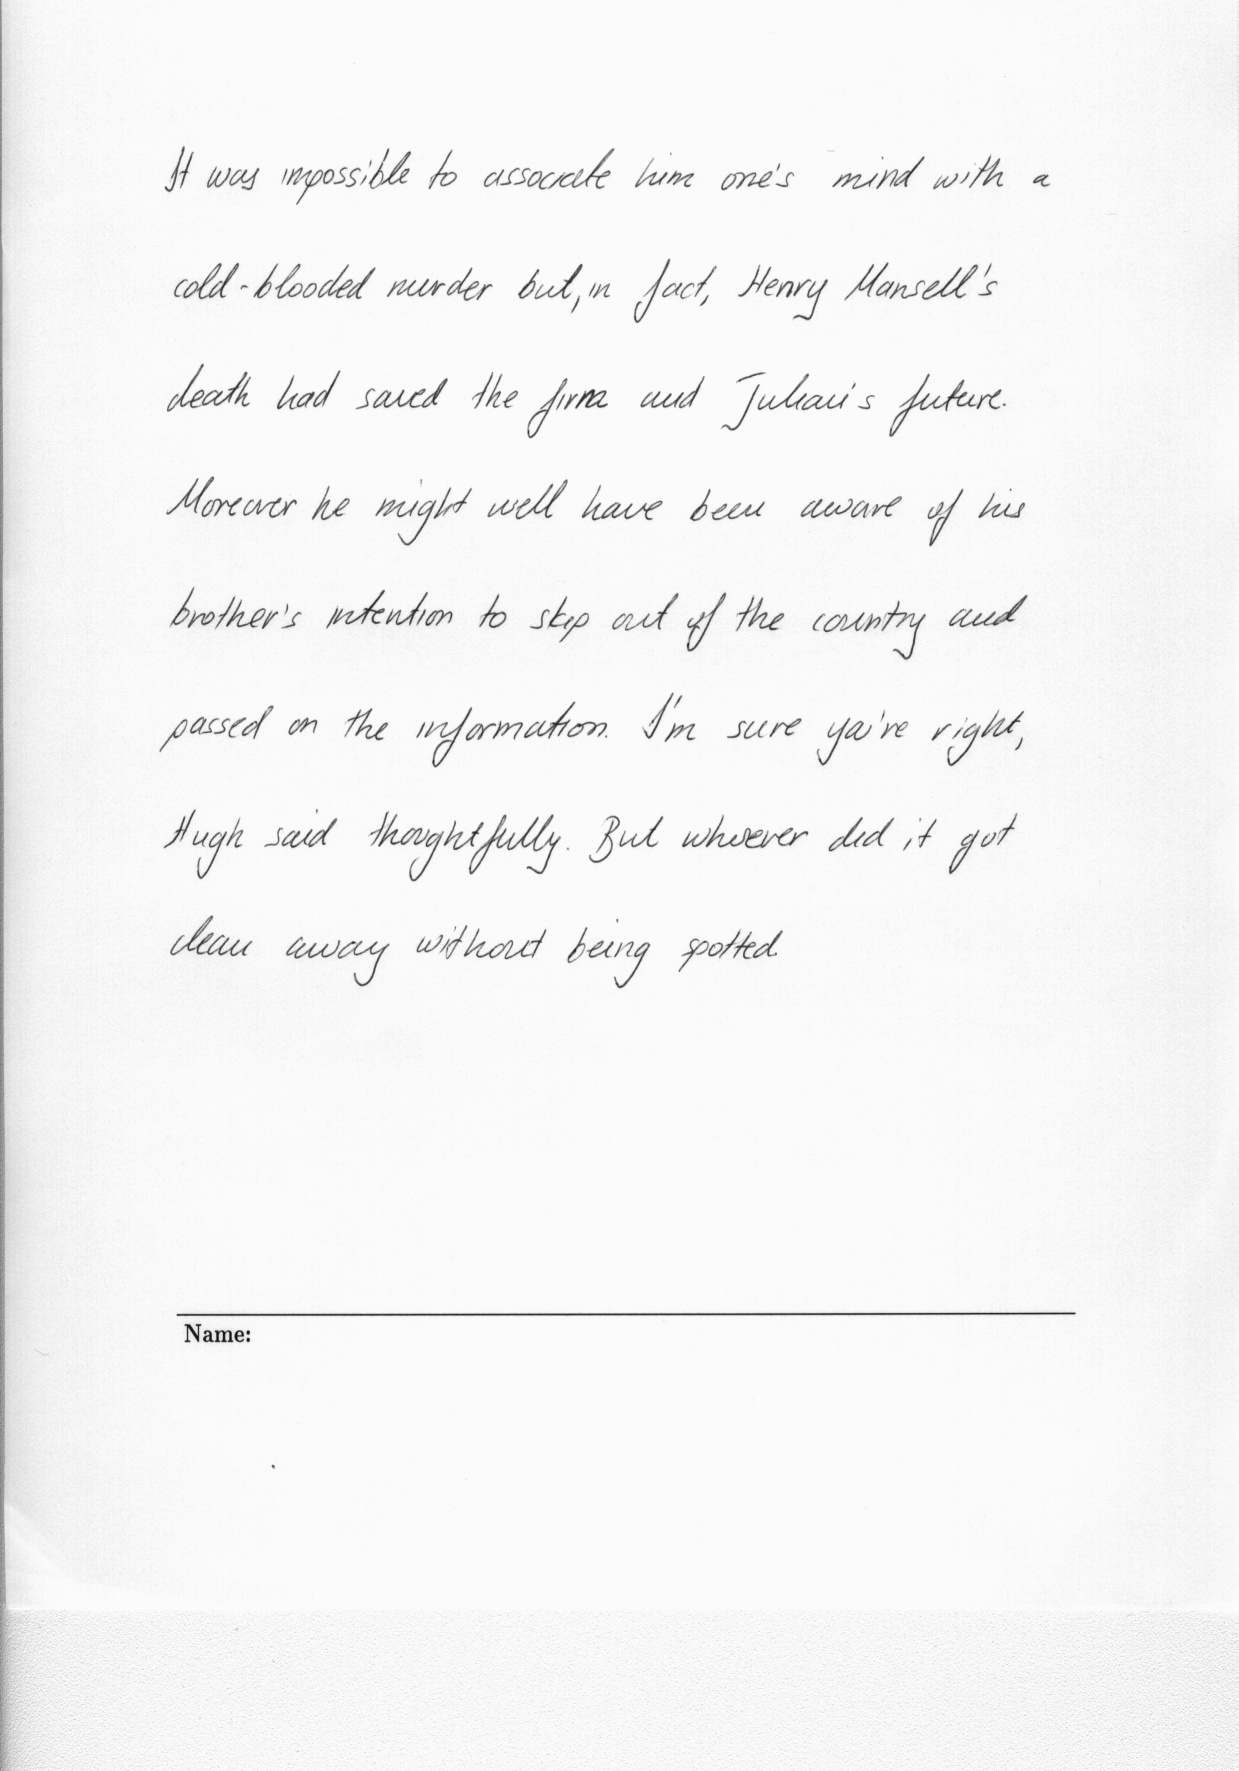 It was impossible to associate him one's mind with a
cold-blooded murder but, in fact, Henry Mansell's
death had saved the firm and Julian's future.
Moreover he might well have been aware of his
brother's intention to skip out of the country and
passed on the information. I'm sure you're right,
Hugh said thoughtfully. But whoever did it got
clean away without being spotted.
Name: